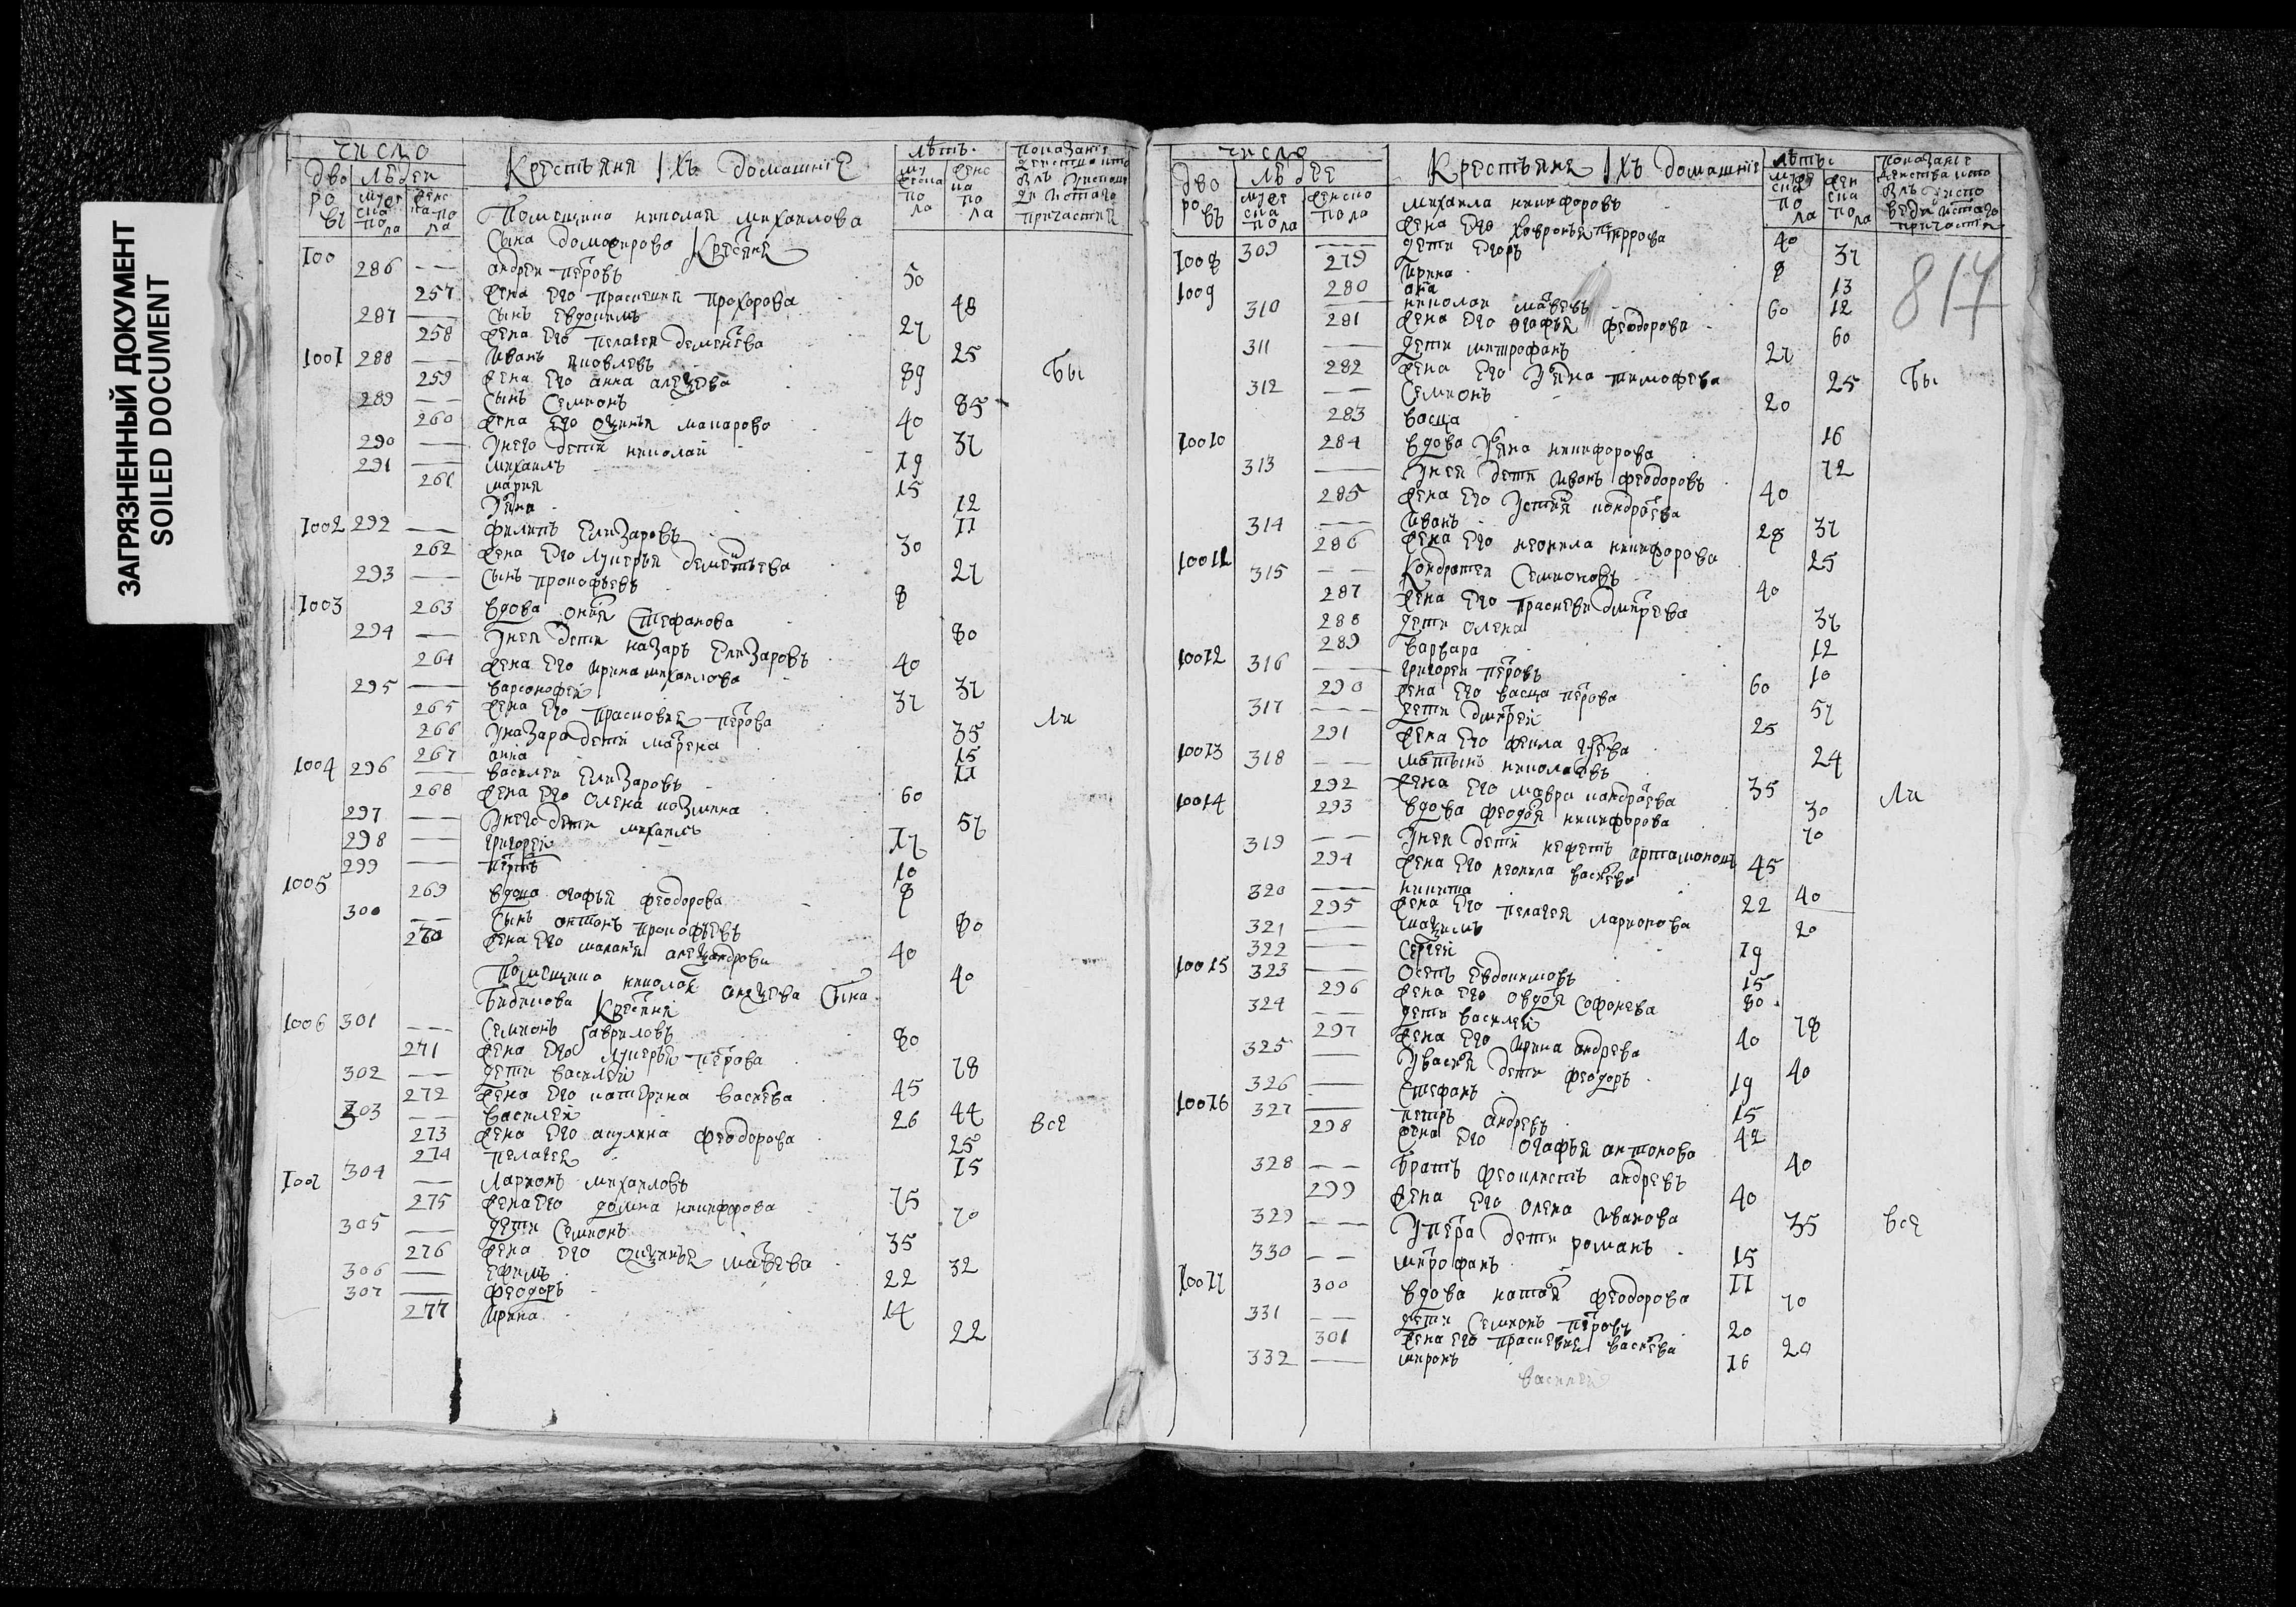 ЗАГРЯЗНЕННЫЙ ДОКУМЕНТ
SOILED DOCUMENT
число
дво ро въ
людеи
муж ска по ла
женс ка по ла
Крестьяня Iхъ домашнiе
лѣтъ
женс ка по ла
показанiе
причастия
Помещика николая михаилова
Сына доможирова Крестяне
100 286 — андреи петровъ 50
257 жена его прасковия прохорова 48
287 — сынъ евдокимъ 27
258 жена его пелагея дементева 25
1001 288 — иванъ яковлевъ 89
259 жена его анна алеѯева 85
289 — сынъ семионъ 40
260 жена его макарова 37
290 — унего дети николаи 19
291 — михаилъ 15
261 мария 12
11
1002 292 — филипъ елизаровъ 30
262 жена его лукерья дементьева 27
293 — сынъ прокофьевъ 8
1003 263 вдова Стефанова 80
294 — унея дети назаръ елизаровъ 40
264 жена его ирина михаилова 37
295 — варсонофеи 37
265 жена его прасковия петрова 35
266 уназара дети марена 15
267 анна 11
1004 296 — василеи елизаровъ 60
268 жена его олена козмина 57
297 — унего дети михаилъ 17
298 — григореи 10
299 — петръ 8
1005 269 вдова огафья феодорова 80
300 — сынъ антонъ прокофьевъ 40
270 жена его маланя алеѯандрова 40
Помещика николая алеѯева Сына
Бибикова Крестяня
1006 301 — Семионъ гавриловъ 80
271 жена его лукерья петрова 78
302 — дети василеи 45
272 жена его катерина василева 44
303 — василеи 26
273 жена его акулина феодорова 25
274 пелагея 15
1007 304 — ларионъ михаиловъ 75
275 жена его домна никифорова 70
305 — дети Семионъ 35
276 жена его матвева 32
306 — ефимъ 22
307 — феодоръ 14
277 ирина 22
Бы
ли
все
число
дво ро въ
муже ска пола
женско пола
Крестьяне Iхъ домашнiе
лѣтъ
жен ска по ла
показанiе
причастия
817
михаила никифоровъ
жена его ховронья петрова
1008 309 — дети егоръ 40
279 ирина 8 37
1009 280 анна 13
310 — николаи матвевъ 60 12
281 жена его огафья феодорова 60
311 — дети митрофанъ 27
282 жена его тимофева 25
312 — Семионъ 20
283 васца 16
10010 284 вдова никифорова 72
313 — унея дети иванъ феодоровъ 40
285 жена его устиня кондратева 37
314 — иванъ 28
286 жена его неонила никифорова 25
10011 315 — Кондратеи Семионовъ 40
287 жена его прасковия дмитрева 37
288 дети олена 12
289 варвара 10
10012 316 — григореи петровъ 60
290 жена его васца петрова 57
317 — дети дмитреи 25
291 жена его фекла 24
10013 318 — николаевъ 35
292 жена его мавра кандратева 30
10014 293 вдова феодося никифорова 70
319 — унея дети нефетъ артамоновъ 45
294 жена его неонила василева 40
320 — никита 22
295 жена его пелагея ларионова 20
321 — маѯимъ 19
322 — Сергеи 15
10015 323 — осепъ евдокимовъ 80
296 жена его овдотя Софонева 78
324 — дети василеи 40
297 жена его ирина андрева 40
325 — у василя дети феодоръ 19
326 — Стефанъ 15
10016 327 — петръ андревъ 42
298 жена его огафья антонова 40
328 — братъ феоклистъ андревъ 40
299 жена его олена иванова 35
329 — упетра дети романъ 15
330 — митрофанъ 11
10017 300 вдова наталя феодорова 70
331 — дети Семионъ петровъ 20
301 жена его прасковия василева 20
332 — миронъ 16
василеи
Бы
ли
все